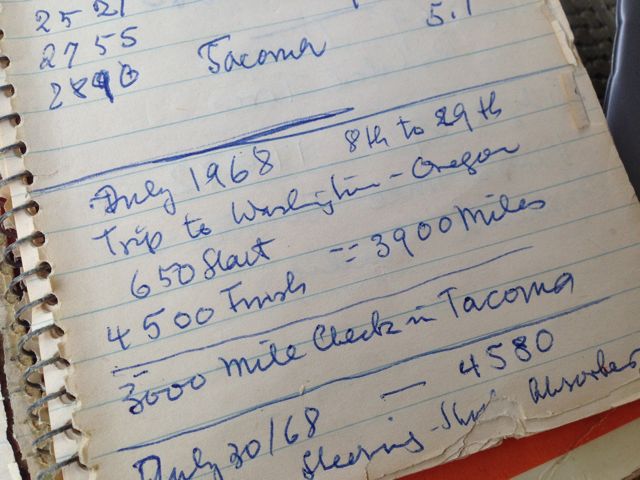 2521
2755
2890 Tacoma 5.1
July 1968 8th to 29th
Trip to Washington - Oregon
650 Start = 3900 Miles
4500 Finish
3000 Mile Check in Tacoma
July 30/68 — 4580
Steering - Shock Absorbers